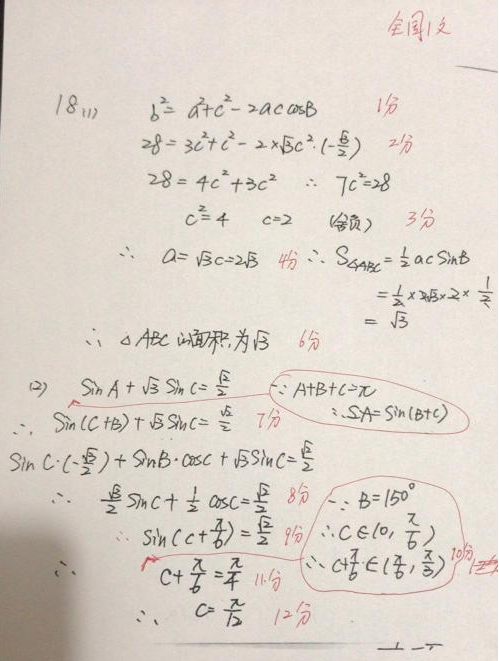 全国1文
18(1) b²=a²+c²-2accosB 1分
28=3c²+c²-2×√3c²·(-√3/2) 2分
28=4c²+3c² ∴ 7c²=28
c²=4 c=2 (舍负) 3分
∴ a=√3c=2√3 4分 ∴ S△ABC=1/2acSinB
=1/2×2√3×2×1/2
=√3
∴ △ABC的面积为√3 6分
(2) SinA+√3Sinc=√2/2 ∵A+B+C=π
∴ Sin(C+B)+√3Sinc=√2/2 7分 ∴SA=Sin(B+C)
Sinc·(-√3/2)+SinB·cosc+√3Sinc=√2/2
∴ √3/2Sinc+1/2cosc=√2/2 8分 ∵B=150°
∴ Sin(c+π/6)=√2/2 9分 ∴C∈(0,π/6)
∴ C+π/6=π/4 11分 ∴C+π/6∈(π/6,π/3) 10分
∴ C=π/12 12分